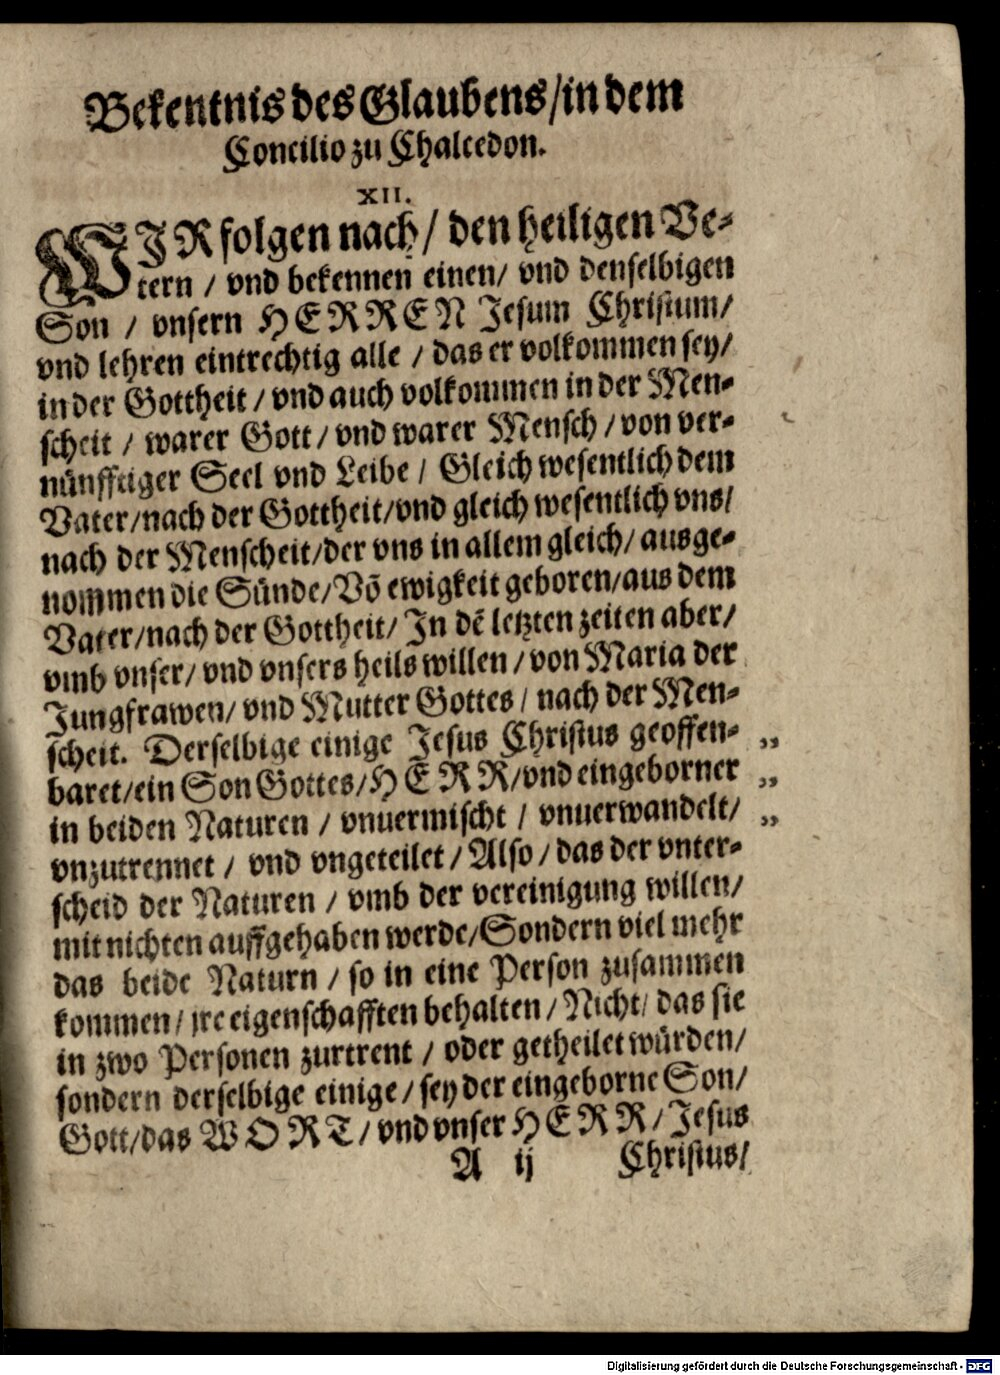 Bekentnis des Glaubens/in dem
Concilio zu Chalcedon.
XII.
WJR folgen nach/ den heiligen Ve⸗
tern / vnd bekennen einen/ vnd denselbigen
Son / vnsern HERREN Jesum Christum/
vnd lehren eintrechtig alle / das er volkommen sey/
in der Gottheit / vnd auch volkommen in der Men⸗
scheit / warer Gott / vnd warer Mensch / von ver⸗
nünfftiger Seel vnd Leibe / Gleich wesentlich dem
Vater/nach der Gottheit/vnd gleich wesentlich vns/
nach der Menscheit/der vns in allem gleich/ ausge⸗
nommen die Sünde/Võ ewigkeit geboren/aus dem
Vater/nach der Gottheit/ In dẽ letzten zeiten aber/
vmb vnser/ vnd vnsers heils willen / von Maria der
Jungfrawen/ vnd Mutter Gottes / nach der Men⸗
scheit. Derselbige einige Jesus Christus geoffen⸗ „
baret/ein Son Gottes/HERR/vnd eingeborner „
in beiden Naturen / vnuermischt / vnuerwandelt/ „
vnzutrennet / vnd vngeteilet / Also / das der vnter⸗
scheid der Naturen / vmb der vereinigung willen/
mit nichten auffgehaben werde/Sondern viel mehr
das beide Naturn / so in eine Person zusammen
kommen/ jre eigenschafften behalten / Nicht/ das sie
in zwo Personen zurtrent / oder getheilet würden/
sondern derselbige einige / sey der eingeborne Son/
Gott/das WORT / vnd vnser HERR / Jesus
A ij Christus/
Digitalisierung gefördert durch die Deutsche Forschungsgemeinschaft - DFG